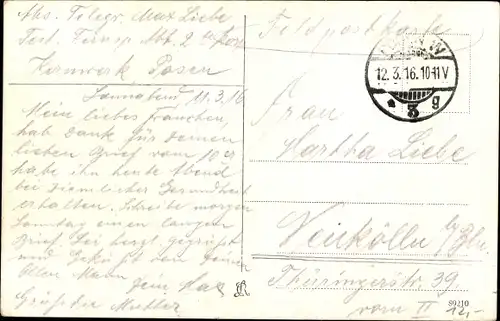 Abs. Telegr. Max Liebe
Fest. Fernsp. Abt. 2
Kernwerk Posen
Sonnabend 11.3.16
Mein liebes Frauchen,
hab Dank für Deinen
lieben Brief vom 10 er
habe ihn heute Abend
bei ziemlicher Gesundheit
erhalten. Schreibe morgen
Sonntag einen langen
Brief. Sei herzl. gegrüßt
und geküßt von Deinem
Dein Max
Grüße der Mutter
Feldpostkarte
12.3.16.10-11V
* 3 g
Frau
Martha Liebe
Neukölln b/Bln.
Thüringerstr. 39.
vorn II
89210
12,-